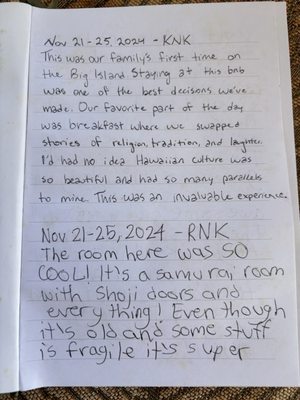 Nov 21-25, 2024 - KNK
This was our family's first time on
the Big Island Staying at this bnb
was one of the best decisons we've
made. Our favorite part of the day
was breakfast where we swapped
stories of religion, tradition, and laughter.
I'd had no idea Hawaiian culture was
so beautiful and had so many parallels
to mine. This was an invaluable experience.
Nov 21-25, 2024 - RNK
The room here was SO
COOL! It's a samurai room
with Shoji doors and
everything! Even though
it's old and some stuff
is fragile it's super